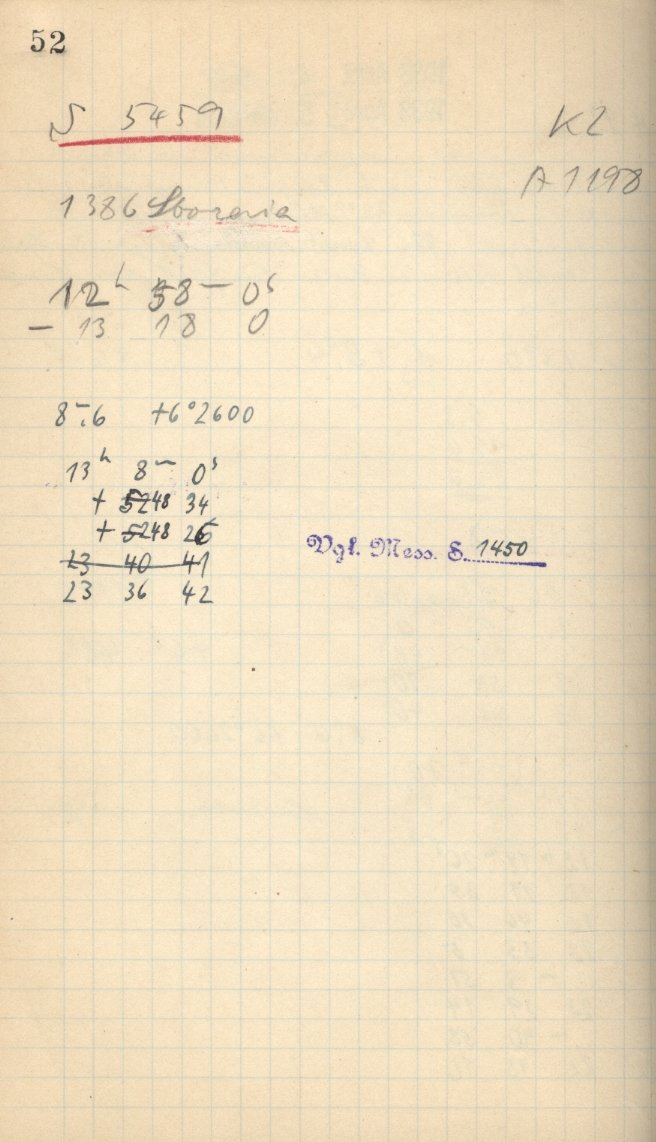 52
S 5459
K2
A 1198
1386 Storeria
12ʰ 58ᵐ 0ˢ
– 13 18 0
8ᵐ.6 +6°2600
13ʰ 8ᵐ 0ˢ
+ 5248 34
+ 5248 26
23 40 41
23 36 42
Vgl. Mess. S. 1450